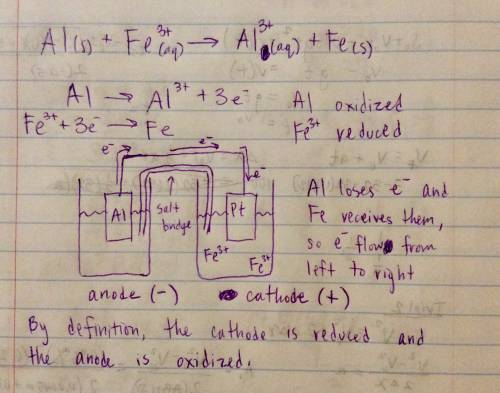 Al(s) + Fe³⁺(aq) → Al³⁺(aq) + Fe(s)
Al → Al³⁺ + 3e⁻
Al oxidized
Fe³⁺ + 3e⁻ → Fe
Fe³⁺ reduced
e⁻
e⁻
e⁻
Al
Salt
bridge
Pt
Fe³⁺
Fe³⁺
Al loses e⁻ and
Fe receives them,
so e⁻ flow from
left to right
anode (-)
cathode (+)
By definition, the cathode is reduced and
the anode is oxidized.